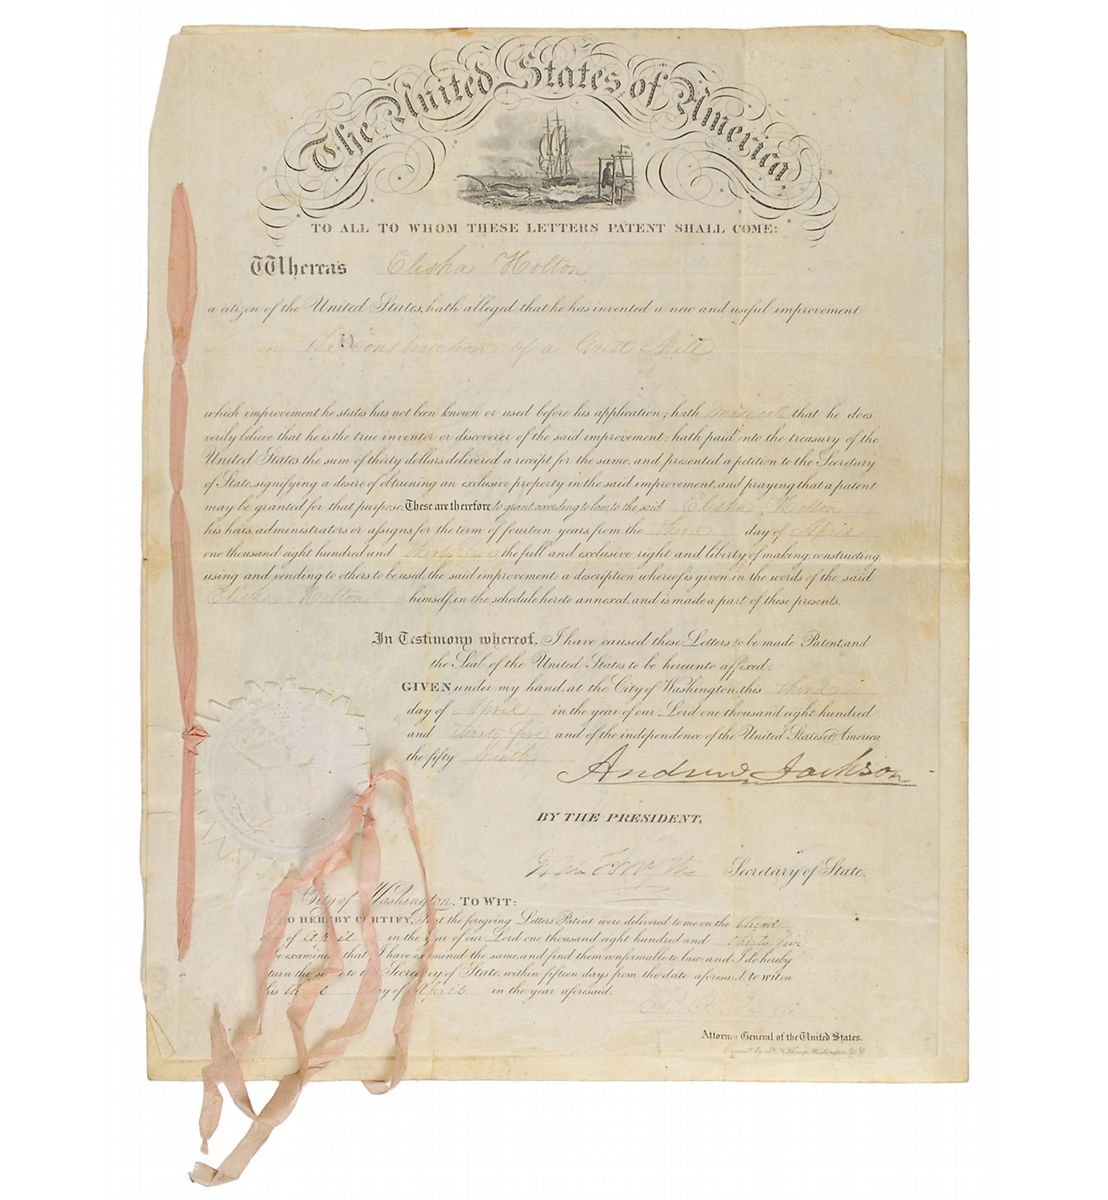 The United States of America
TO ALL TO WHOM THESE LETTERS PATENT SHALL COME:
Whereas Elisha Holton
a citizen of the United States, hath alleged that he has invented a new and useful improvement
in the construction of a Grist Mill
which improvement he states has not been known or used before his application; hath made oath that he does
verily believe that he is the true inventor or discoverer of the said improvement; hath paid into the treasury of the
United States the sum of thirty dollars, delivered a receipt for the same, and presented a petition to the Secretary
of State, signifying a desire of obtaining an exclusive property in the said improvement, and praying that a patent
may be granted for that purpose: These are therefore to grant, according to law, to the said Elisha Holton
his heirs, administrators or assigns, for the term of fourteen years, from the third day of April
one thousand eight hundred and thirty five the full and exclusive right and liberty of making, constructing,
using and vending to others to be used, the said improvement; a description whereof is given in the words of the said
Elisha Holton himself, in the schedule hereto annexed, and is made a part of these presents.
In Testimony whereof, I have caused these Letters to be made Patent, and
the Seal of the United States to be hereunto affixed.
GIVEN under my hand, at the City of Washington, this third
day of April in the year of our Lord one thousand eight hundred
and thirty five and of the independence of the United States of America
the fifty ninth
Andrew Jackson
BY THE PRESIDENT,
Forsyth Secretary of State.
City of Washington, TO WIT:
DO HEREBY CERTIFY, That the foregoing Letters Patent were delivered to me on the third
of April in the year of our Lord one thousand eight hundred and thirty five
to be examined; that I have examined the same, and find them conformable to law; and I do hereby
return the same to the Secretary of State, within fifteen days from the date aforesaid, to wit: on
this third day of April in the year aforesaid.
Attorney General of the United States.